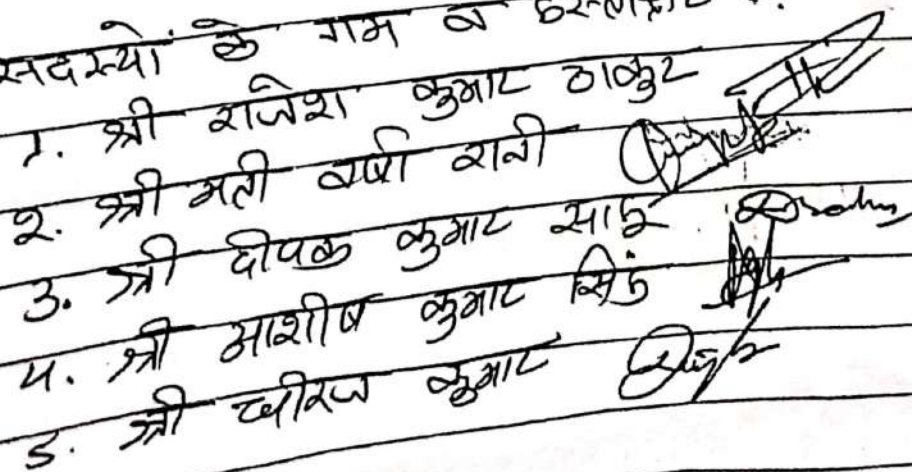 सदस्यों के नाम व हस्ताक्षर :
1. श्री राजेश कुमार ठाकुर
2. श्री मती वर्षा रानी
3. श्री दीपक कुमार साहू
4. श्री आशीष कुमार सिंह
5. श्री धीरज कुमार